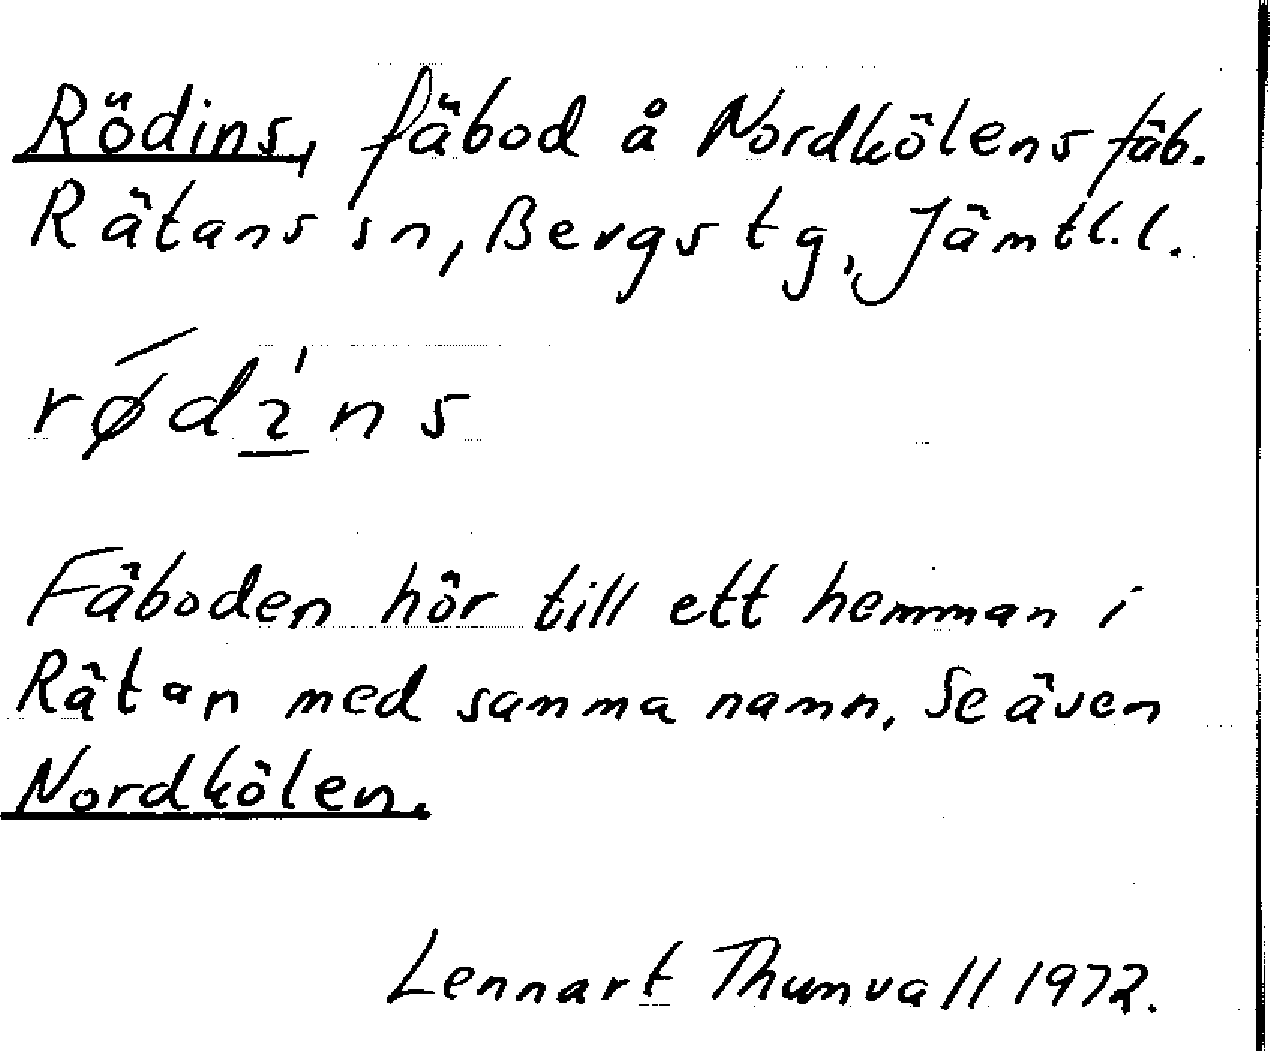 Rödins, fäbod å Nordkölens fäb.
Rätans sn, Bergs tg, Jämtl. l.
rǿdi̲ns
Fäboden hör till ett hemman i
Rätan med samma namn. Se även
Nordkölen.
Lennart Thunvall 1972.